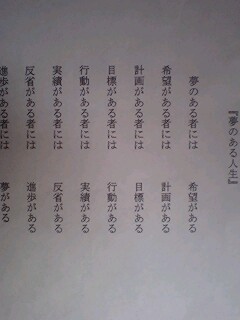 『夢のある人生』
夢のある者には　希望がある
希望がある者には　計画がある
計画がある者には　目標がある
目標がある者には　行動がある
行動がある者には　実績がある
実績がある者には　反省がある
反省がある者には　進歩がある
進歩がある者には　夢がある